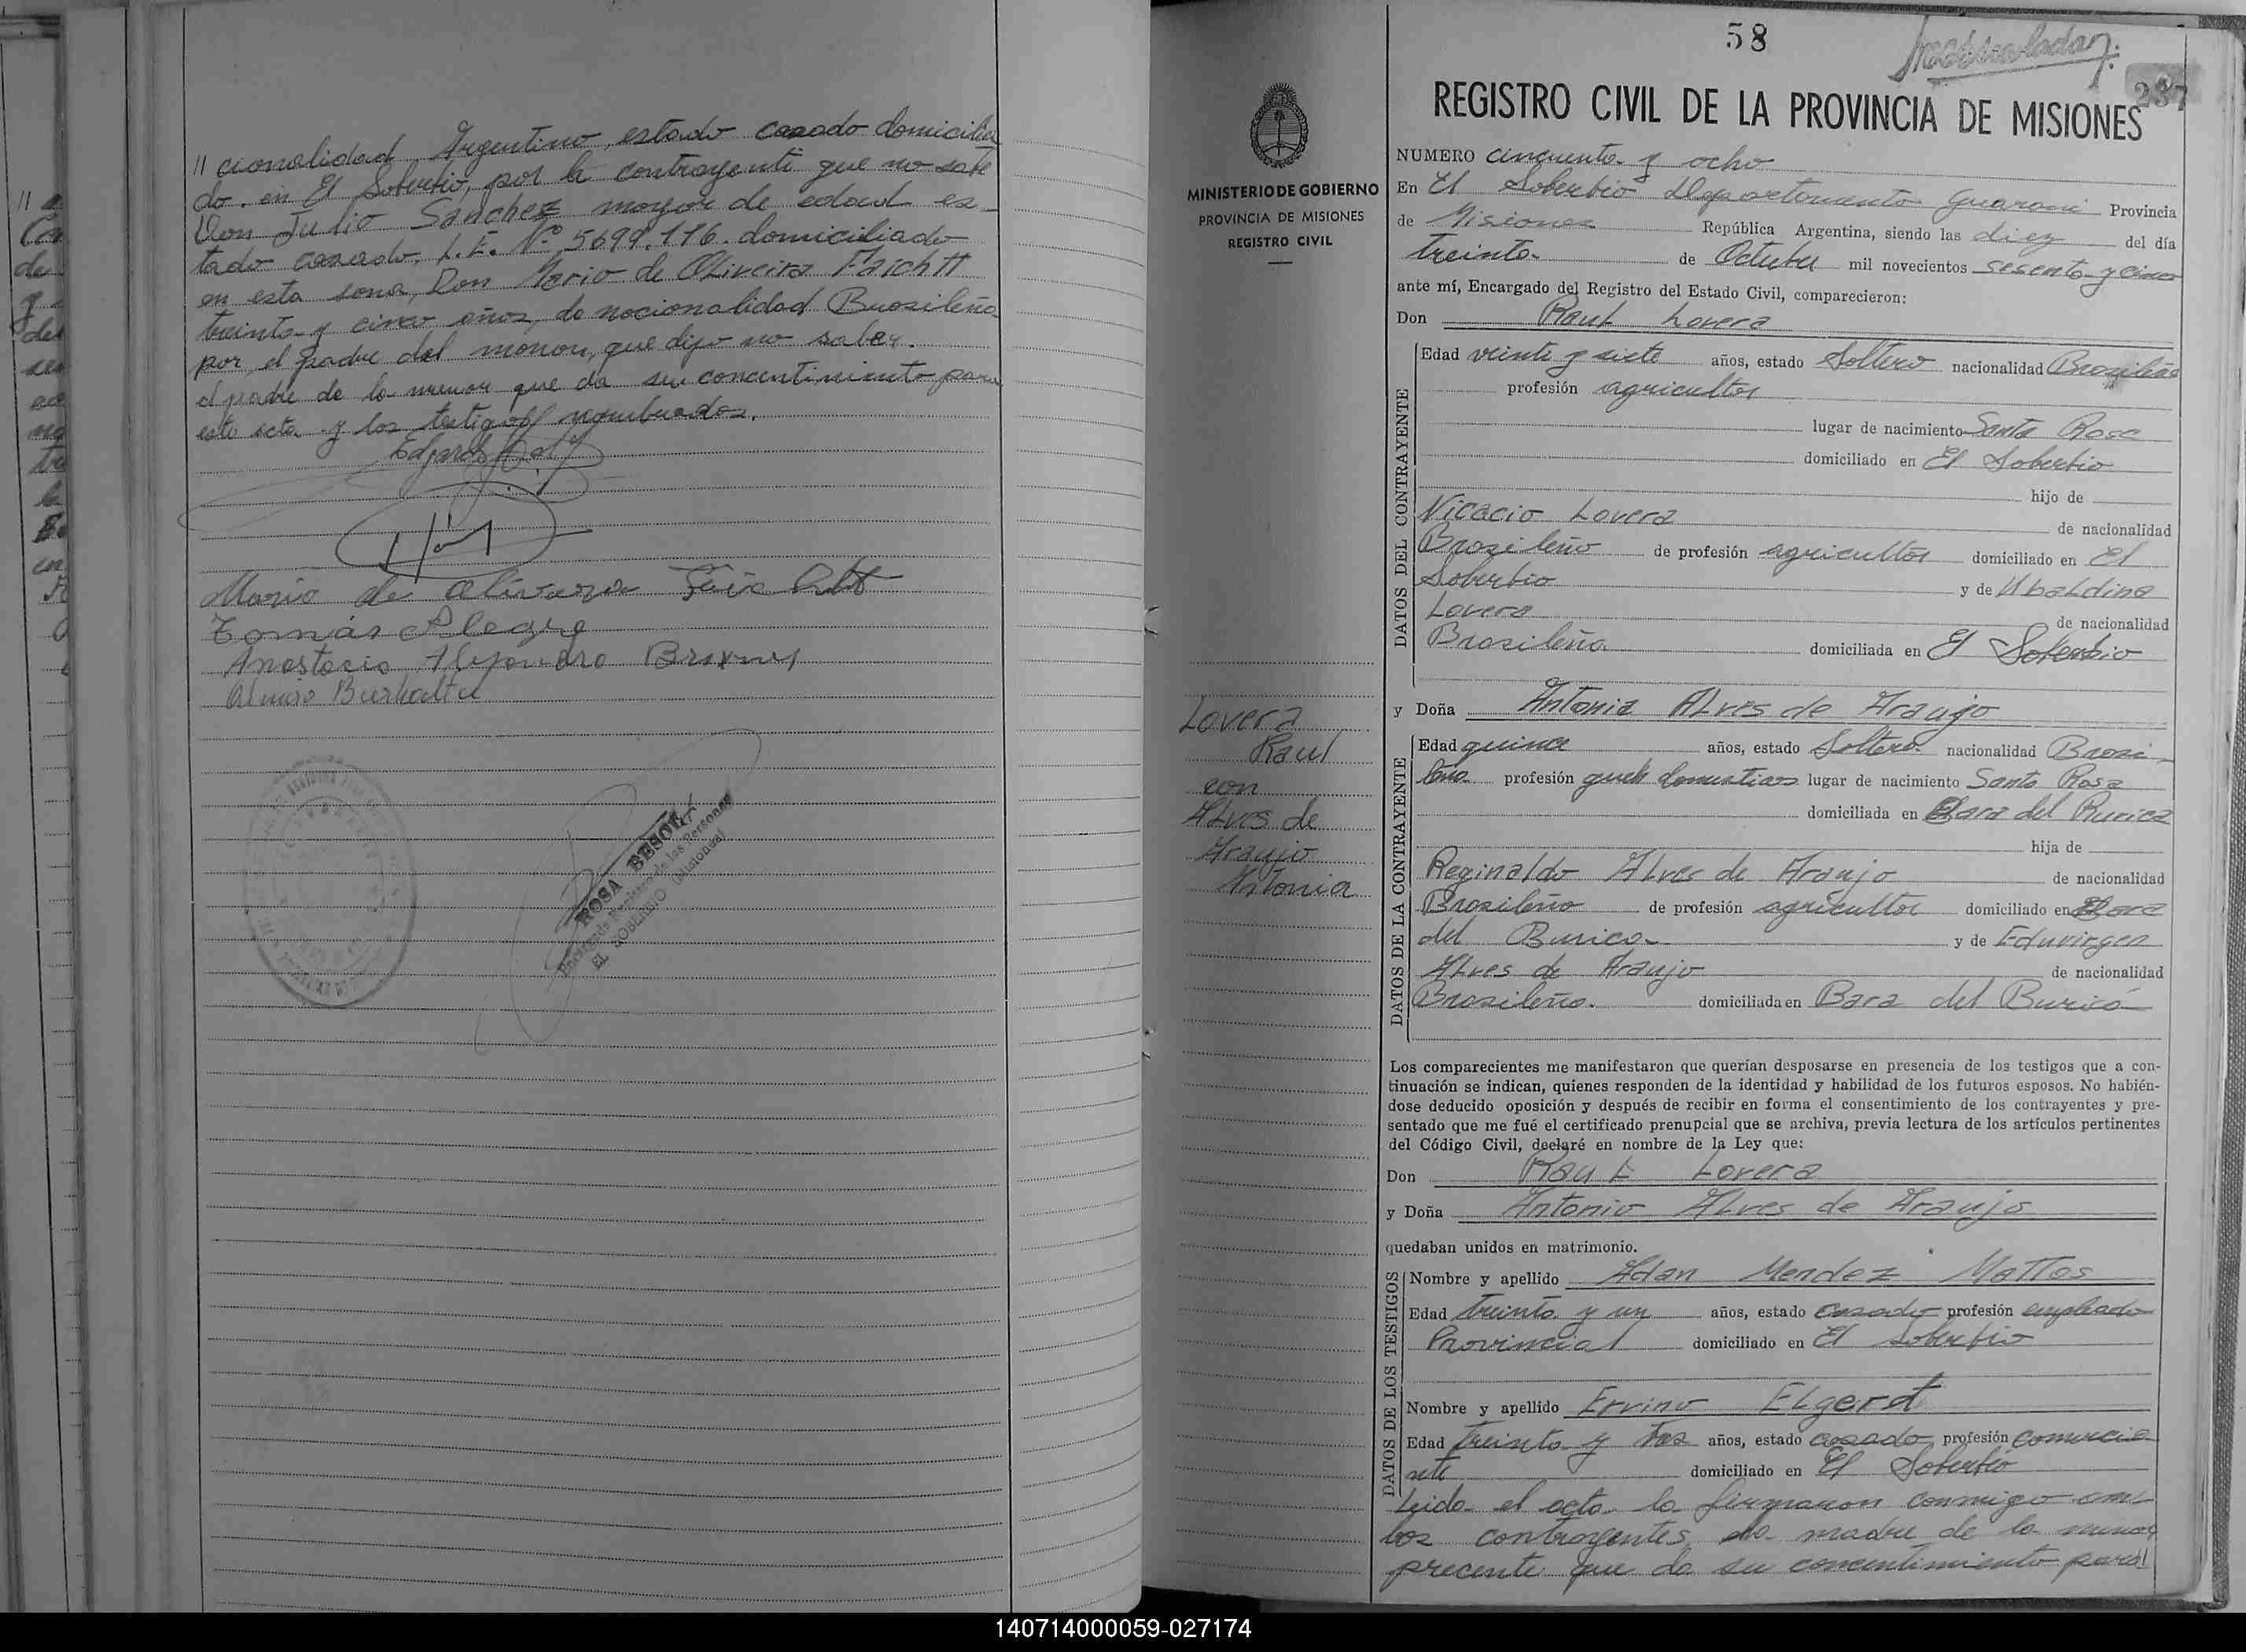 // cionalidad Argentino, estado casado domicilia
do. en El Soberbio, por la contrayente que no sabe
Don Julio Sanchez mayor de edad es_
tado casado, L.E. Nº 5699.116. domiciliado
en esta zona, Don Mario de Oliveira Faichtt
treinta y cinco años, de nacionalidad Brasileña
por el padre del menor, que dijo no saber.
el padre de la menor que da su concentimiento para
esta acta y los testigos nombrados.
Mario de
Tomás Alegre
Anastacio
ROSA BESOL
Encargada Registro de las Personas
EL SOBERBIO (Misiones)
58
237
REGISTRO CIVIL DE LA PROVINCIA DE MISIONES
MINISTERIO DE GOBIERNO
PROVINCIA DE MISIONES
REGISTRO CIVIL
NUMERO cincuenta y ocho
En El Soberbio Departamento Guarani Provincia
de Misiones República Argentina, siendo las diez del día
treinta de Octubre mil novecientos sesenta y cinco
ante mí, Encargado del Registro del Estado Civil, comparecieron:
Don Raul Lovera
DATOS DEL CONTRAYENTE
Edad veinte y siete años, estado Soltero nacionalidad Brasileño
profesión agricultor
lugar de nacimiento Santa Rosa
domiciliado en El Soberbio
hijo de
Nicacio Lovera de nacionalidad
Brasileño de profesión agricultor domiciliado en El
Soberbio y de Ubaldina
Lovera de nacionalidad
Brasileña domiciliada en El Soberbio
y Doña Antonia Alves de Araujo
Lovera
Raul
con
Alves de
Araujo
Antonia
DATOS DE LA CONTRAYENTE
Edad quince años, estado Soltera nacionalidad Brasi_
leña profesión queh domesticos lugar de nacimiento Santa Rosa
domiciliada en Bara del Burica
hija de
Reginaldo Alves de Araujo de nacionalidad
Brasileño de profesión agricultor domiciliado en Bara
del Burica y de Eduvirgen
Alves de Araujo de nacionalidad
Brasileña. domiciliada en Bara del Buricá
Los comparecientes me manifestaron que querían desposarse en presencia de los testigos que a con-
tinuación se indican, quienes responden de la identidad y habilidad de los futuros esposos. No habién-
dose deducido oposición y después de recibir en forma el consentimiento de los contrayentes y pre-
sentado que me fué el certificado prenupcial que se archiva, previa lectura de los artículos pertinentes
del Código Civil, declaré en nombre de la Ley que:
Don Raul Lovera
y Doña Antonio Alves de Araujo
quedaban unidos en matrimonio.
DATOS DE LOS TESTIGOS
Nombre y apellido Adan Mendez Mattos
Edad treinta y un años, estado casado profesión empleado
Provincial domiciliado en El Soberbio
Nombre y apellido Ervino Elgerdt
Edad treinta y tres años, estado casado profesión comercia_
nte domiciliado en El Soberbio
Leida el acta la firmaron conmigo am_
bos contrayentes, la madre de la menor
precente que da su concentimiento para//
140714000059-027174